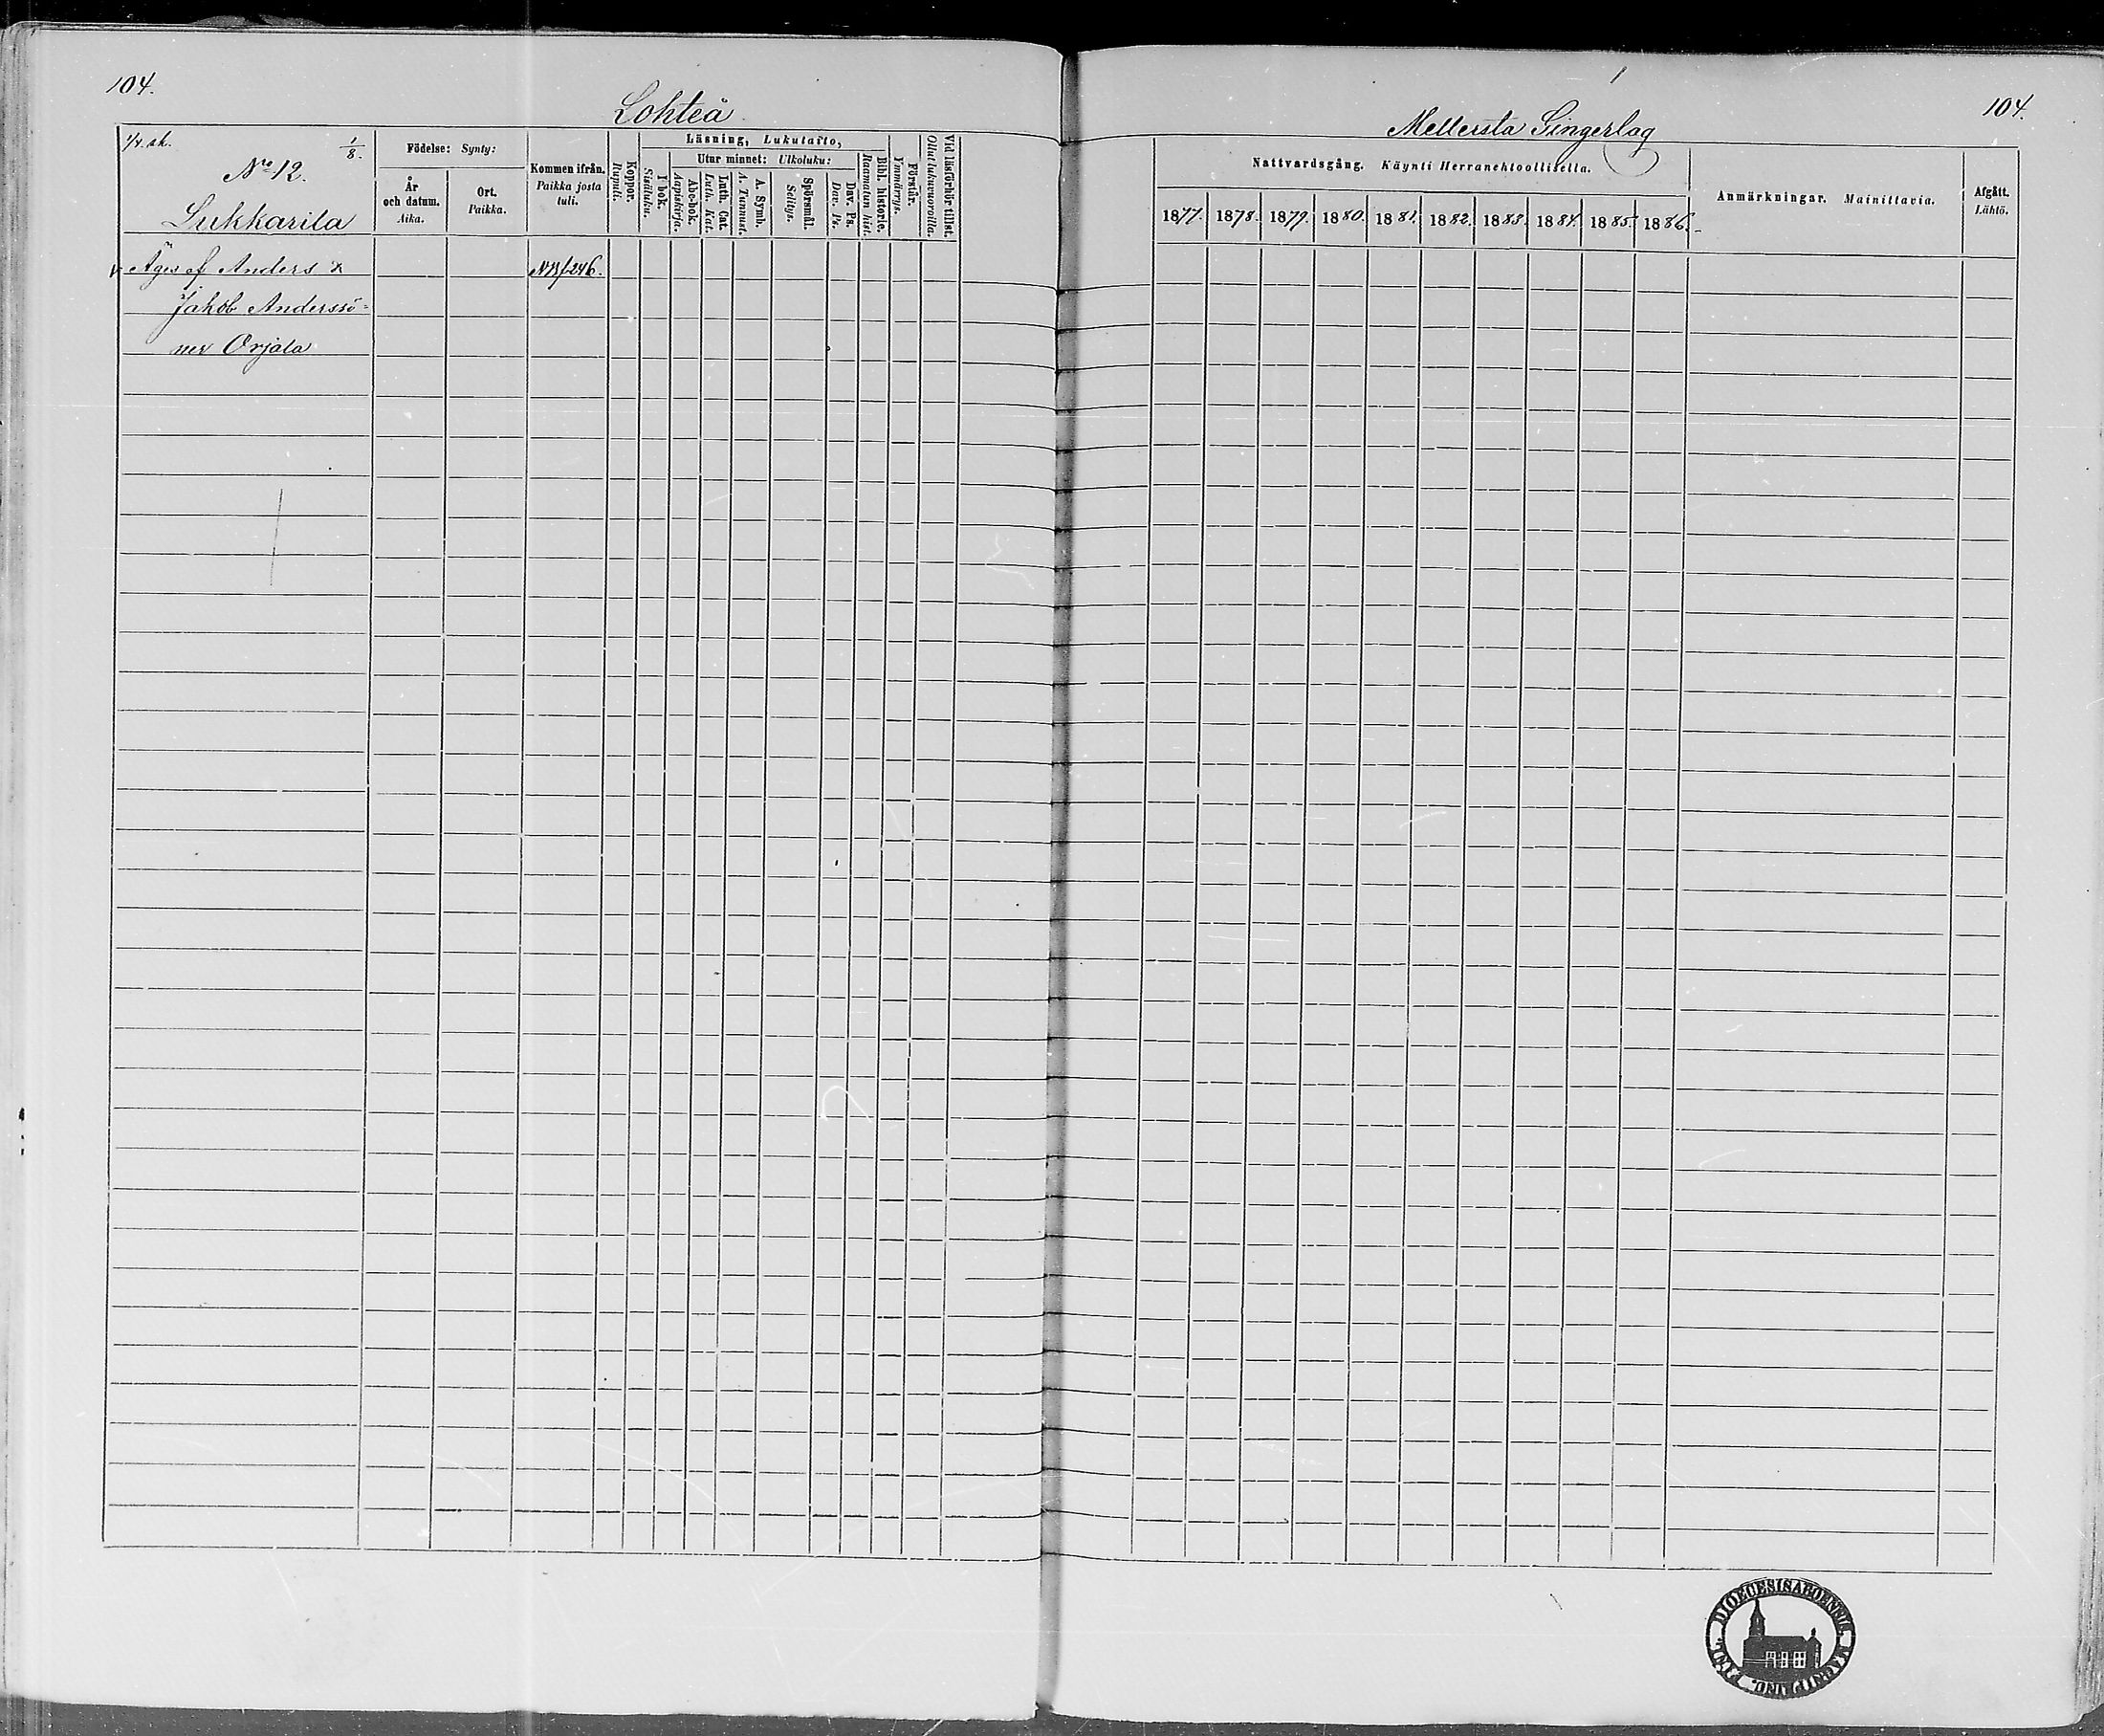 104.
Lohteå
1/4 sk. 1/8.
No 12.
Lukkarila
Födelse: Synty:
År och datum. Aika.
Ort. Paikka.
Kommen ifrån. Paikka josta tuli.
Koppor. Rupuli.
Läsning, Lukutaito,
I bok. Sisäluku.
Utur minnet: Ulkoluku:
Abc-bok. Aapiskirja.
Luth. Cat. Luth. Kat.
A. Symb. A. Tunnust.
Spörsmål. Selitys.
Dav. Ps. Dav. Ps.
Bibl. historie. Raamatun hist.
Förstår. Ymmärrys.
Vid läsförhör tillst. Ollut lukuvuorolla.
Äges af Anders &
Jakob Anderssö=
ner Orjala
104.
Mellersta Singerlag
Nattvardsgång. Käynti Herranehtoollisella.
1877. 1878. 1879. 1880. 1881. 1882. 1883. 1884. 1885. 1886.
Anmärkningar. Mainittavia.
Afgått. Lähtö.